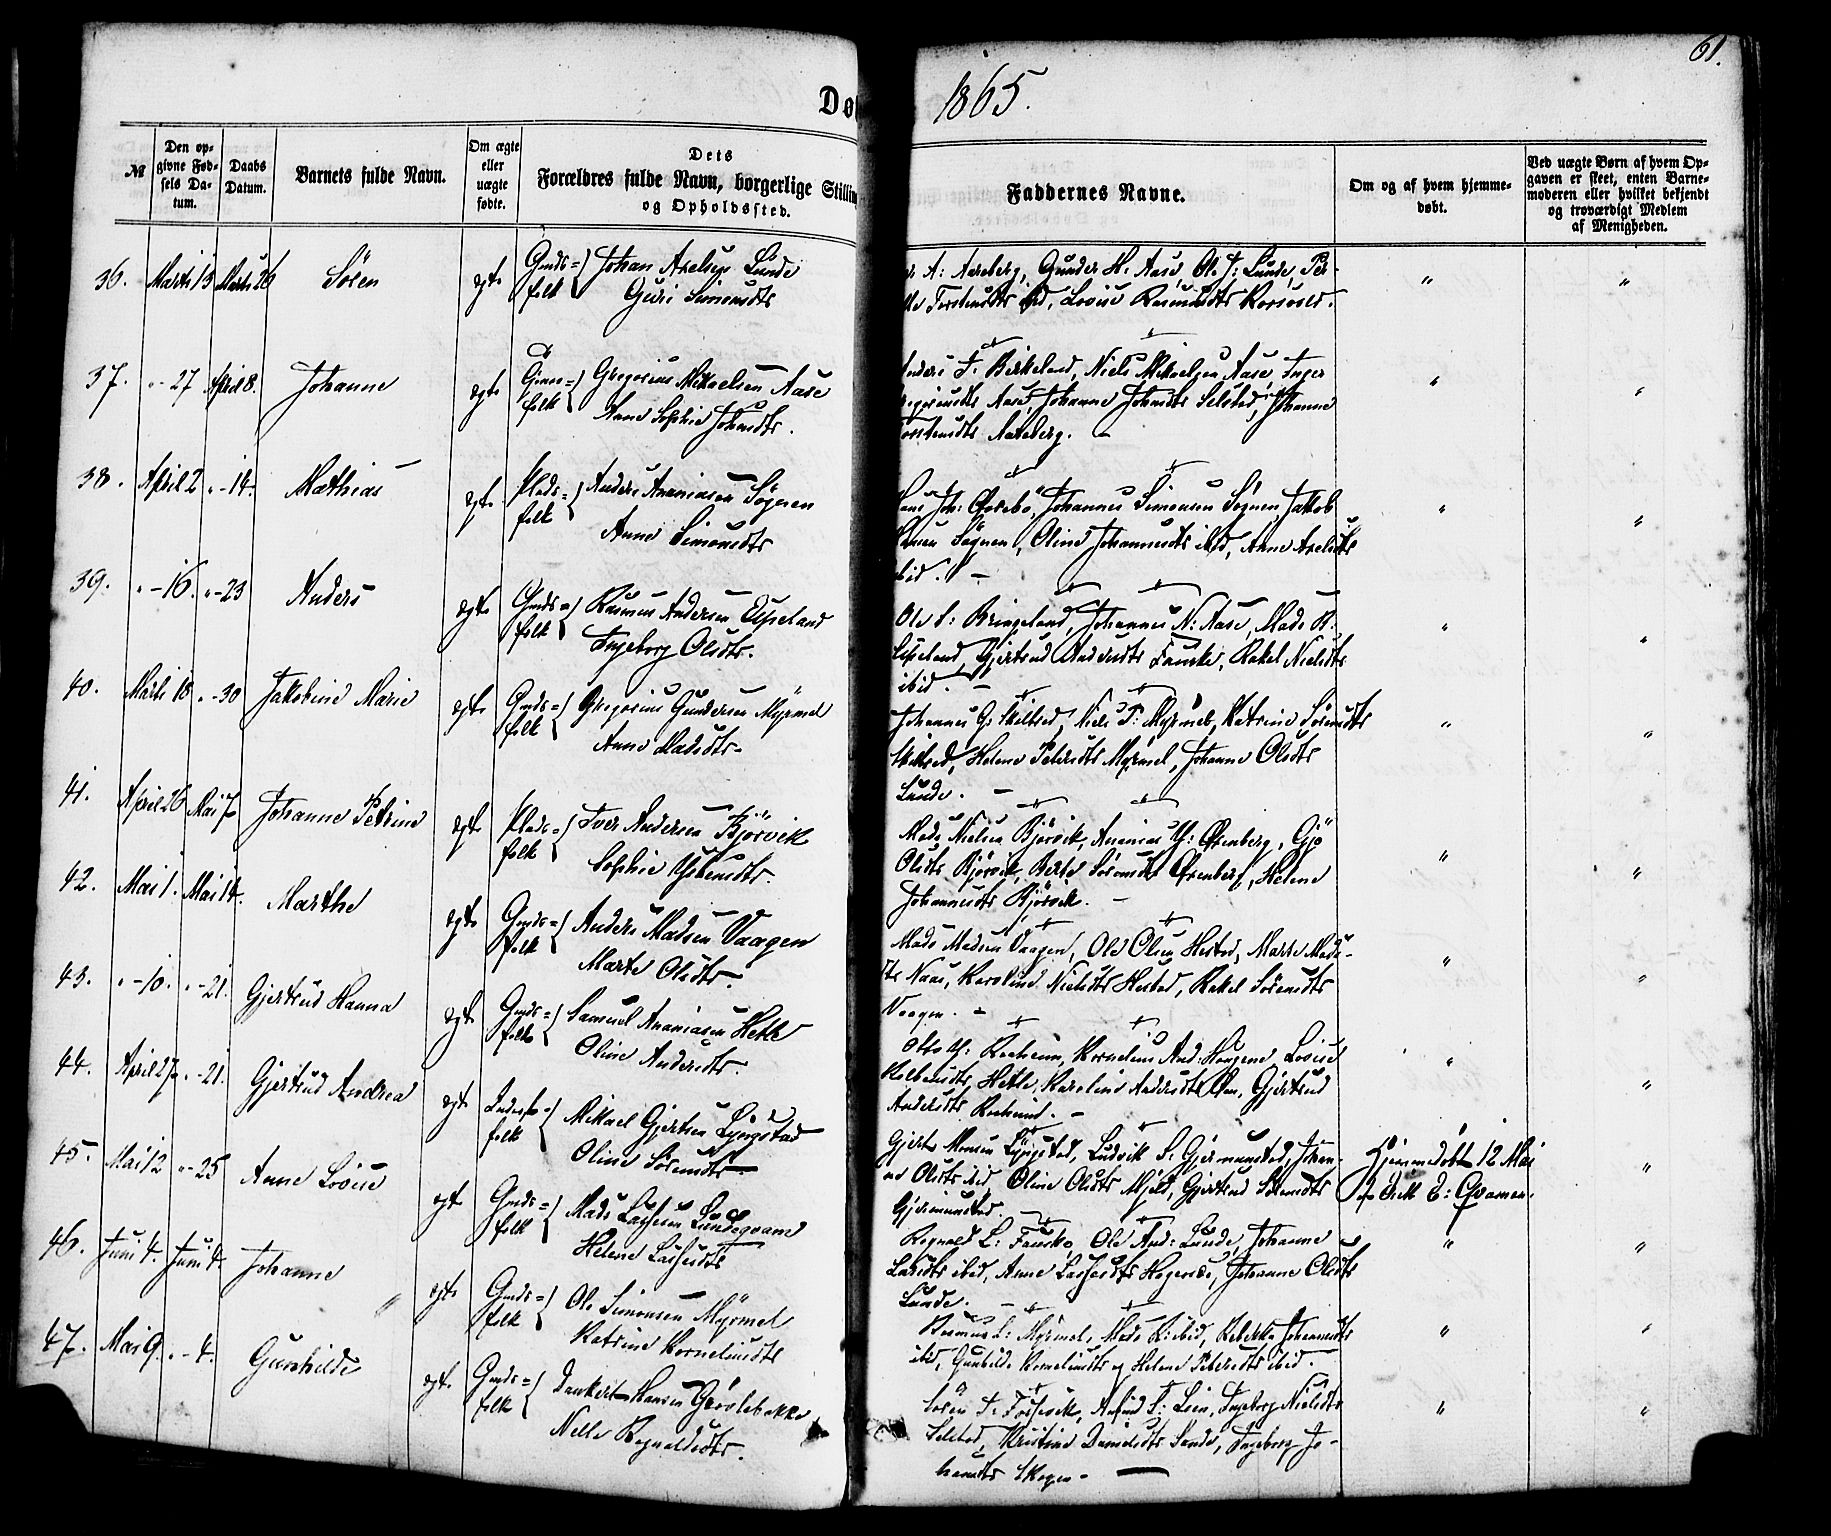 61.
Dø 1865.
№
Den op-
givne Fød-
sels Da-
tum.
Daabs
Datum.
Barnets fulde Navn.
Om ægte
eller
uægte
fødte.
Dets
Forældres fulde Navn, borgerlige Stilling
og Opholdssted.
Faddernes Navne.
Om og af hvem hjemme-
døbt.
Ved uægte Børn af hvem Op-
gaven er skeet, enten Barne-
moderen eller hvilket bekjendt
og troværdigt Medlem
af Menigheden.
36. Marts 13 Marts 26 Sören ægte Gmds= Johan Axelsen Lunde
folk Guri Simonsdtr
A: Aareberg, Gunder H. Aase, Ole J: Lunde, Per-
Torstensdtr ibid, Lovise Rasmusdtr " "
37. "-27 April 8. Johanne ægte folk Gregorius Mikaelsen Aase
Anne Sophie Johnsdtr.
Anders J. Birkeland, Niels Mikaelsen Aase, Inger
Aase, Johanne Johnsdtr Selstad, Johanne " "
Torstensdtr Aareberg. -
38. April 2 "-14. Mathias ægte Plads= Anders Ananiasen Sögnen
folk Anne Simonsdtr
Joh: Johannes Simonsen Sögnen, Jakob
Sögnen, Oline Johannesdtr ibid, Anne Axelsdtr " "
ibid. -
39. "-16. "-23 Anders ægte Gmds= Rasmus Andersen Espeland
folk Ingeborg Olsdtr.
Ole S: Bringeland, Johannes N: Aase, Mads R:
Espeland, Gjertrud Andersdtr Fauske, Rakel Nielsdtr " "
ibid. -
40. Marts 18 "-30 Jakobine Marie ægte Gmds= Gregorius Gundersen Myrmel
folk Anne Madsdtr-
Johannes G: Skilbred, Niels P: Myrmel, Katrine Sörensdtr
Skilbred, Helene Petersdtr Myrmel, Johanne Olsdtr " "
Lunde. -
41. April 26 Mai 7 Johanne Petrine ægte Plads= Iver Andersen Björvik
folk Sophie Esbensdtr.
Mads Nielsen Björvik, Ananias Grenberg, Gjö
Olsdtr Björvik, Berte Sörensdtr Grenberg, Helene " "
Johannesdtr Björvik. -
42. Mai 1. Mai 14. Marthe ægte Gmds= Anders Madsen Vaagen
folk Marte Olsdtr.
Mads Madsen Vaagen, Ole Olsen Hestad, Marte Mads-
dtr Naas, Karoline Nielsdtr Hestad, Rakel Sörensdtr " "
Vaagen. -
43. "-10. "-21. Gjertrud Hanna ægte Gmds= Samuel Ananiasen Hetle
folk Oline Andersdtr.
Otto Kornelius And: Lovise
Hetle, Karoline Andersdtr Gjertrud " "
Andersdtr -
44. April 27 "-21. Gjertrud Andrea ægte folk Mikael Gjertsen Lyngstad
Oline Sörensdtr
Gjert Monsen Lyngstad, Ludvik S: Gjermundstad, Johan-
ne Olsdtr ibid, Oline Olsdtr Mjell, Gjertrud Sörensdtr
Gjermundstad.
Hjemmedöbt 12 Mai
af "
45. Mai 12 "-25 Anne Lovise ægte Gmds= Mads Lassesen Lundeqvam
folk Helene Lassesdtr
Regnald L: Fauske, Ole And: Lunde, Johanne
Larsdtr ibid, Anne Lassesdtr Johanne Olsdtr " "
Lunde. -
46. Juni 4. Juni 4. Johanne ægte Gmds= Ole Simonsen Myrmel
folk Katrine Korneliusdtr
Rasmus S: Myrmel, Mads R: ibid, Rebekka Johannesdtr " "
ibid, Gunhilde Korneliusdtr og Helene Petersdtr ibid.
47. Mai 9. "-4. Gunhilde ægte Gmds= Dankert Hansen Grövlebakke
folk Nelle Regnaldsdtr.
Sören J: Försvik, Ingeborg Nielsdtr
Selstad, Kristine Danielsdtr Sande, Ingeborg Jo- " "
hansdtr Skogen -